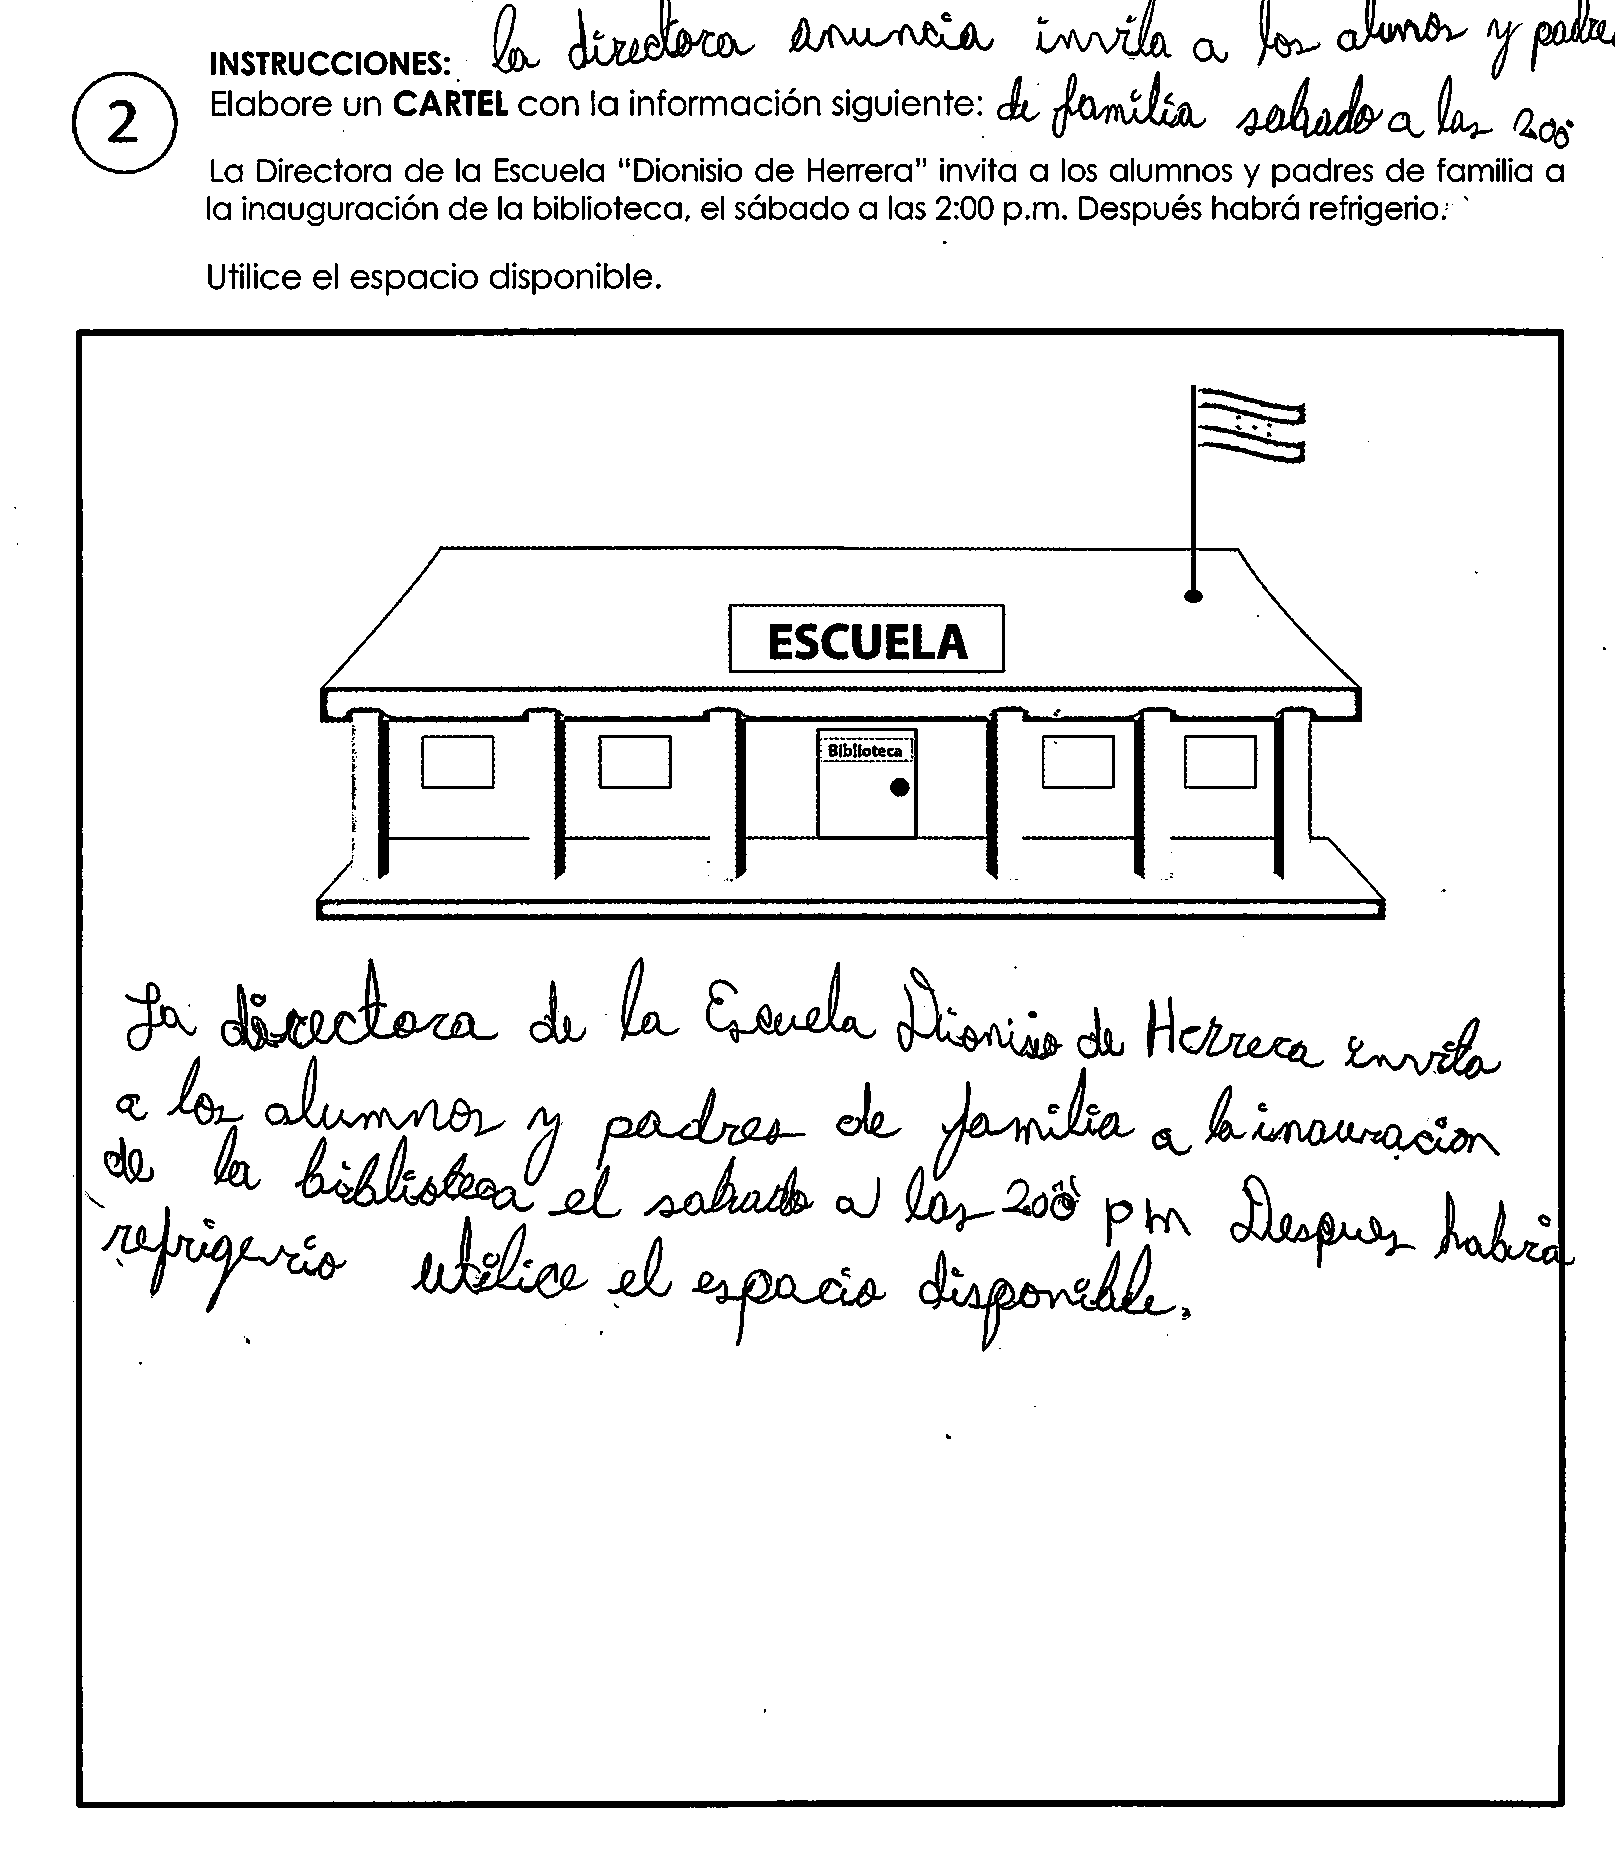 la directora anuncia invita a los alunos y padres
INSTRUCCIONES:
2
Elabore un CARTEL con la información siguiente:
de familia sabado a las 2:00
La Directora de la Escuela "Dionisio de Herrera" invita a los alumnos y padres de familia a
la inauguración de la biblioteca, el sábado a las 2:00 p.m. Después habrá refrigerio.
Utilice el espacio disponible.
ESCUELA
Biblioteca
La directora de la Escuela Dionisio de Herrera invita
a los alumnos y padres de familia a la inauracion
de la biblioteca el sabado a las 200 pm Despues habrá
refrigerio utilice el espacio disponible.